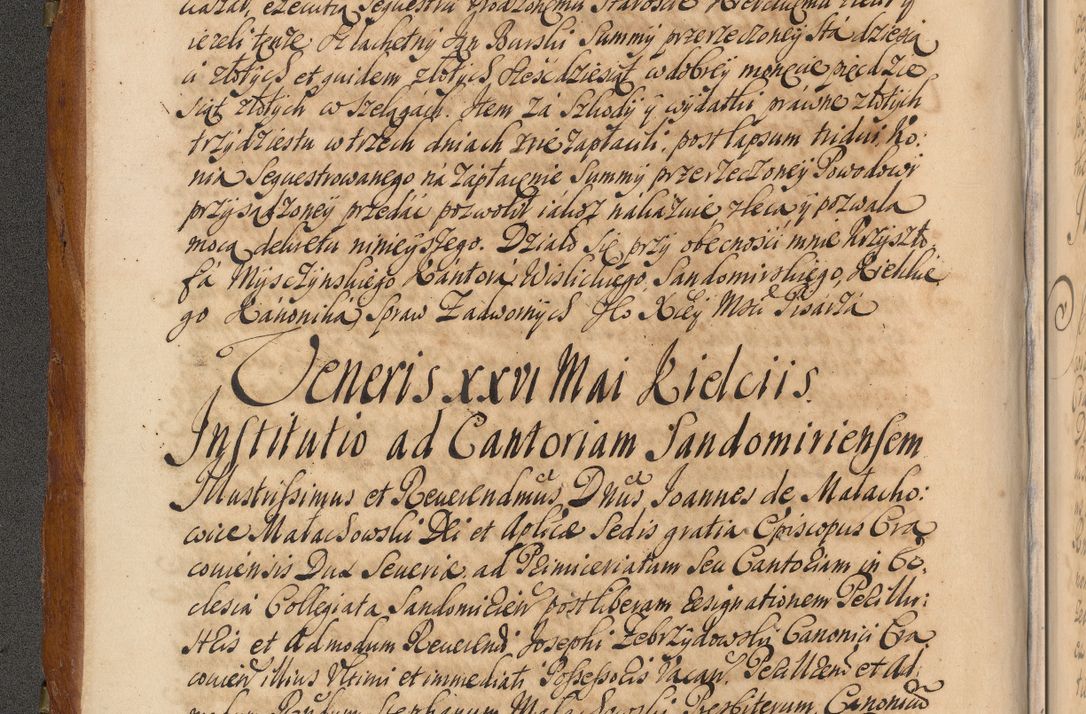 ieżeli tenże Szlachetny Jan Burski Summy przerzeczoney Sta dziesią
ci złotych et quidem złotych sześćdziesiąt w dobrey monecie pięćdzie
siąt złotych w szelągach. Item zá szkody y wydatki práwne złotych
trzydziestu w trzech dniach nie zapłacili, post lapsum tridui ko:
nia Sequestrowanego ná zapłacenie Summy przerzeczoney Powodowi
przysądzoney przedáć pozwolił iákoż nákázuie zleca y pozwala
mocą dekretu ninieyszego. Działo się przy obecności mnie Krzyszto
fá Myśczynskiego Kántorá Wislickiego, Sandomirskiego, Kieleckie
go Kánoniká, Spraw Zadwornych Je Xcey Mości Pisarza
Veneris XXVI Mai Kielciis.
Institutio ad Cantoriam Sandomiriensem
Illustrissimus et Reverendmus Dnus Joannes de Małacho:
wice Małachowski Dei et Aplicæ Sedis gratia Episcopus Cra
coviensis Dux Severiæ, ad Primiceriatum seu Cantoriam in Ec:
clesia Collegiata Sandomirien post liberam resignationem Perillu:
stris et Admodum Reverendi Josephi Zebrzydowski Canonici Cra
covien illius Ultimi et immediati Possessoris Vacan. Perillrem et Ad
Stephanum Małachowski Presbiterum, Canonicum